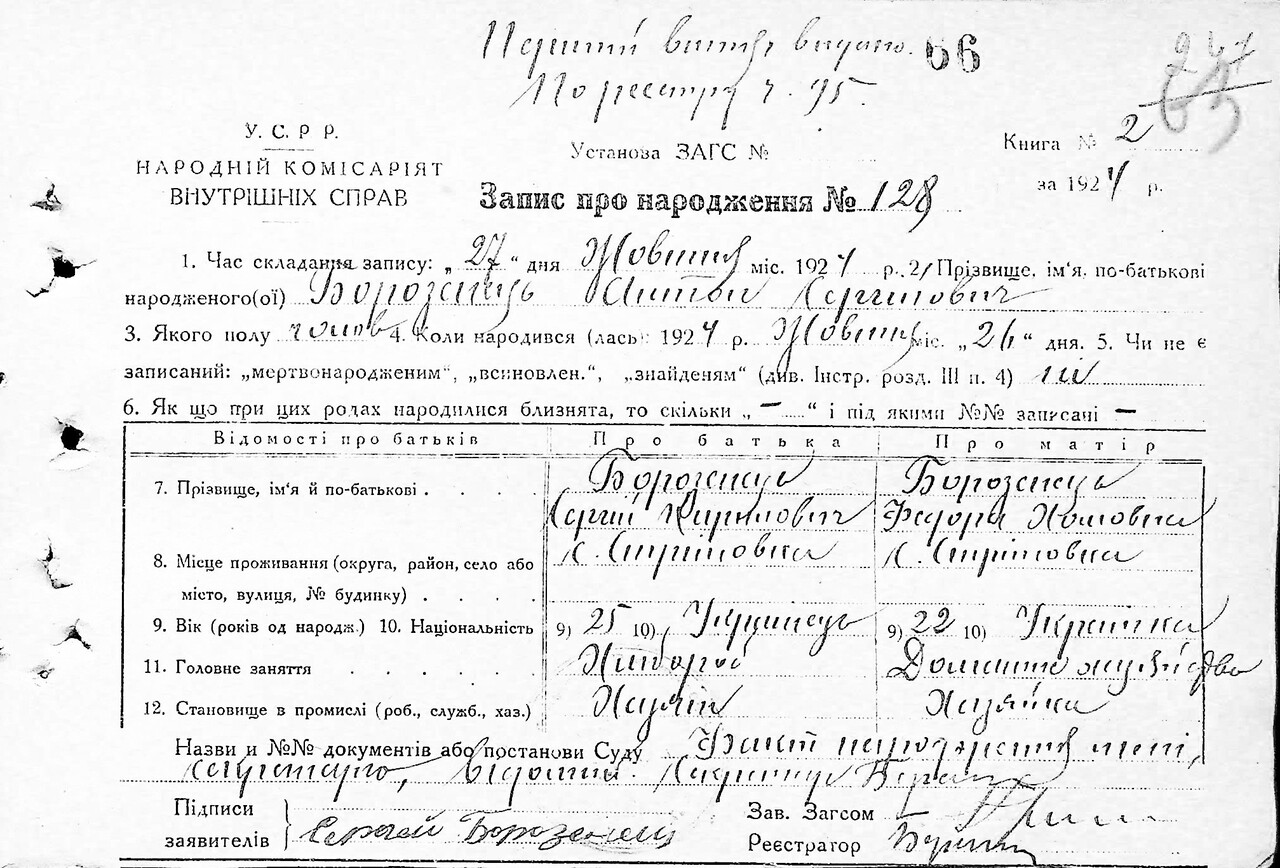 Перший витяг видано. 66
По реєстру ч. 95.
У. С. Р Р.
НАРОДНІЙ КОМІСАРІЯТ
ВНУТРІШНІХ СПРАВ
Установа ЗАГС №
Книга № 2
за 1924 р.
Запис про народження № 128
1. Час складання запису: „27“ дня Жовтня міс. 1924 р. 2/ Прізвище, ім'я, по-батькові
народженого(ої) Борозенець Антон Сергійович
3. Якого полу чолов 4. Коли народився (лась) 1924 р. Жовтня міс. „26“ дня. 5. Чи не є
записаний: „мертвонародженим“, „всиновлен.“, „знайденям“ (див. Інстр. розд. III п. 4) ні
6. Як що при цих родах народилися близнята, то скільки „—“ і під якими №№ записані —
Відомості про батьків Про батька Про матір
7. Прізвище, ім'я й по-батькові . . . . Борозенець Борозенець
Сергій Кирилович Федора Хомовна
8. Місце проживання (округа, район, село або С. Стритовка С. Стрітовка
місто, вулиця, № будинку) . . . .
9. Вік (років од народж.) 10. Національність 9) 25 10) Українець 9) 22 10) Українка
11. Головне заняття . . . . . Хлібороб Домашнє хазяйство
12. Становище в промислі (роб., служб., хаз.) Хазяїн Хазяйка
Назви и №№ документів або постанови Суду Факт народження мені,
секретарю, відомий. Секретар
Підписи
заявителів Сергей Борозенец
Зав. Загсом
Реєстратор